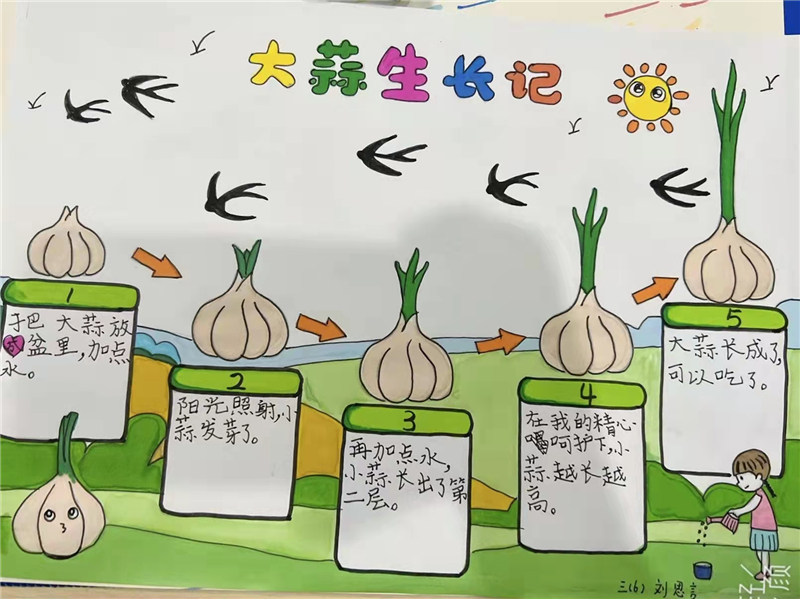 大蒜生长记
1
把大蒜放
盆里,加点
水。
2
阳光照射,小
蒜发芽了。
3
再加点水,
小蒜长出了第
二层。
4
在我的精心
呵护下,小
蒜越长越
高。
5
大蒜长成了,
可以吃了。
三(6) 刘思言